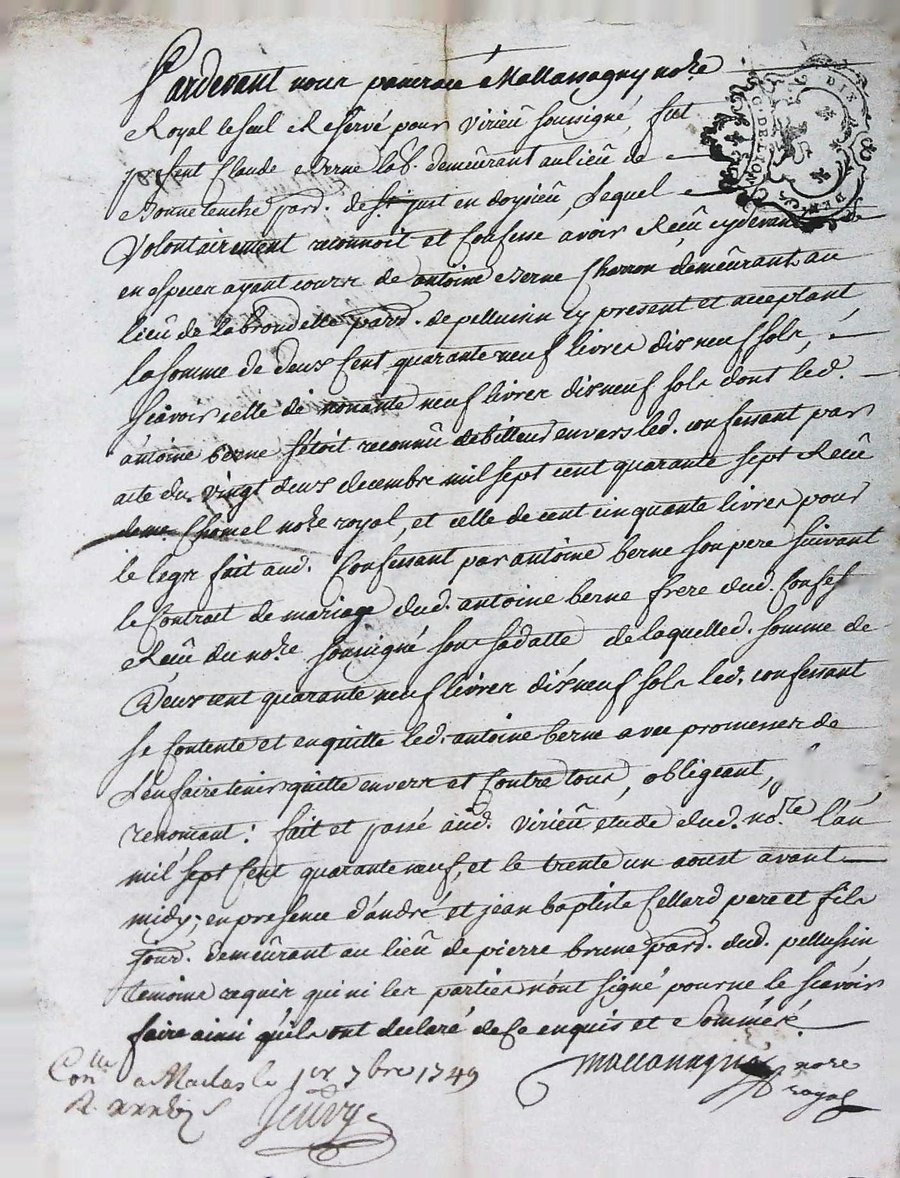 Pardevant nous pancrace Mallassagny no.re
Royal le seul Reservé pour virieû soussigné, fut
present Claude Berne lab.r demeûrant au lieû de
Bonnetanche par.d de St just en doyzieû, Lequel
Volontairement reconnoit et Confesse avoir Receû cydevant
en especes ayant cours de antoine Berne Charron demeûrant au
lieû de la brondelle par.d de pellussin cy present et acceptant
la somme de deux Cent quarante neuf livres dixneuf sols,
scavoir celle de nonante neuf livres dixneuf sols dont led.
antoine berne s'etoit reconnû debiteur envers led. confessant par
acte du vingt deux decembre mil sept cent quarante sept Receû
de me Chomel no.re royal, et celle de cent cinquante livres pour
le legs fait aud. Confessant par antoine berne son pere suivant
le Contrait de mariage dud. antoine berne frere dud. Confess.
Receû du no.re soussigné sous sa datte de laquelle d. somme de
Deux cent quarante neuf livres dixneuf sols led. confessant
se Contente et en quitte led. antoine berne avec promesses de
L'en faire tenir quitte envers et Contre tous, obligeant,
renonçant: fait et passé aud. virieû etude dud. no.re l'an
mil sept Cent quarante neuf, et le trente un aoust avant
midy; en presence d'andré et jean baptiste Cellard pere et fils
jour.d demeûrant au lieû de pierre brune par.d dud. pellussin
temoins requis qui ni les parties n'ont signé pour ne le scavoir
faire ainsi qu'ils ont declaré de Ce enquis et Sommés.
Con.lle a Maclas le 1er 7bre 1749
R.
Mallassagny nore
royal